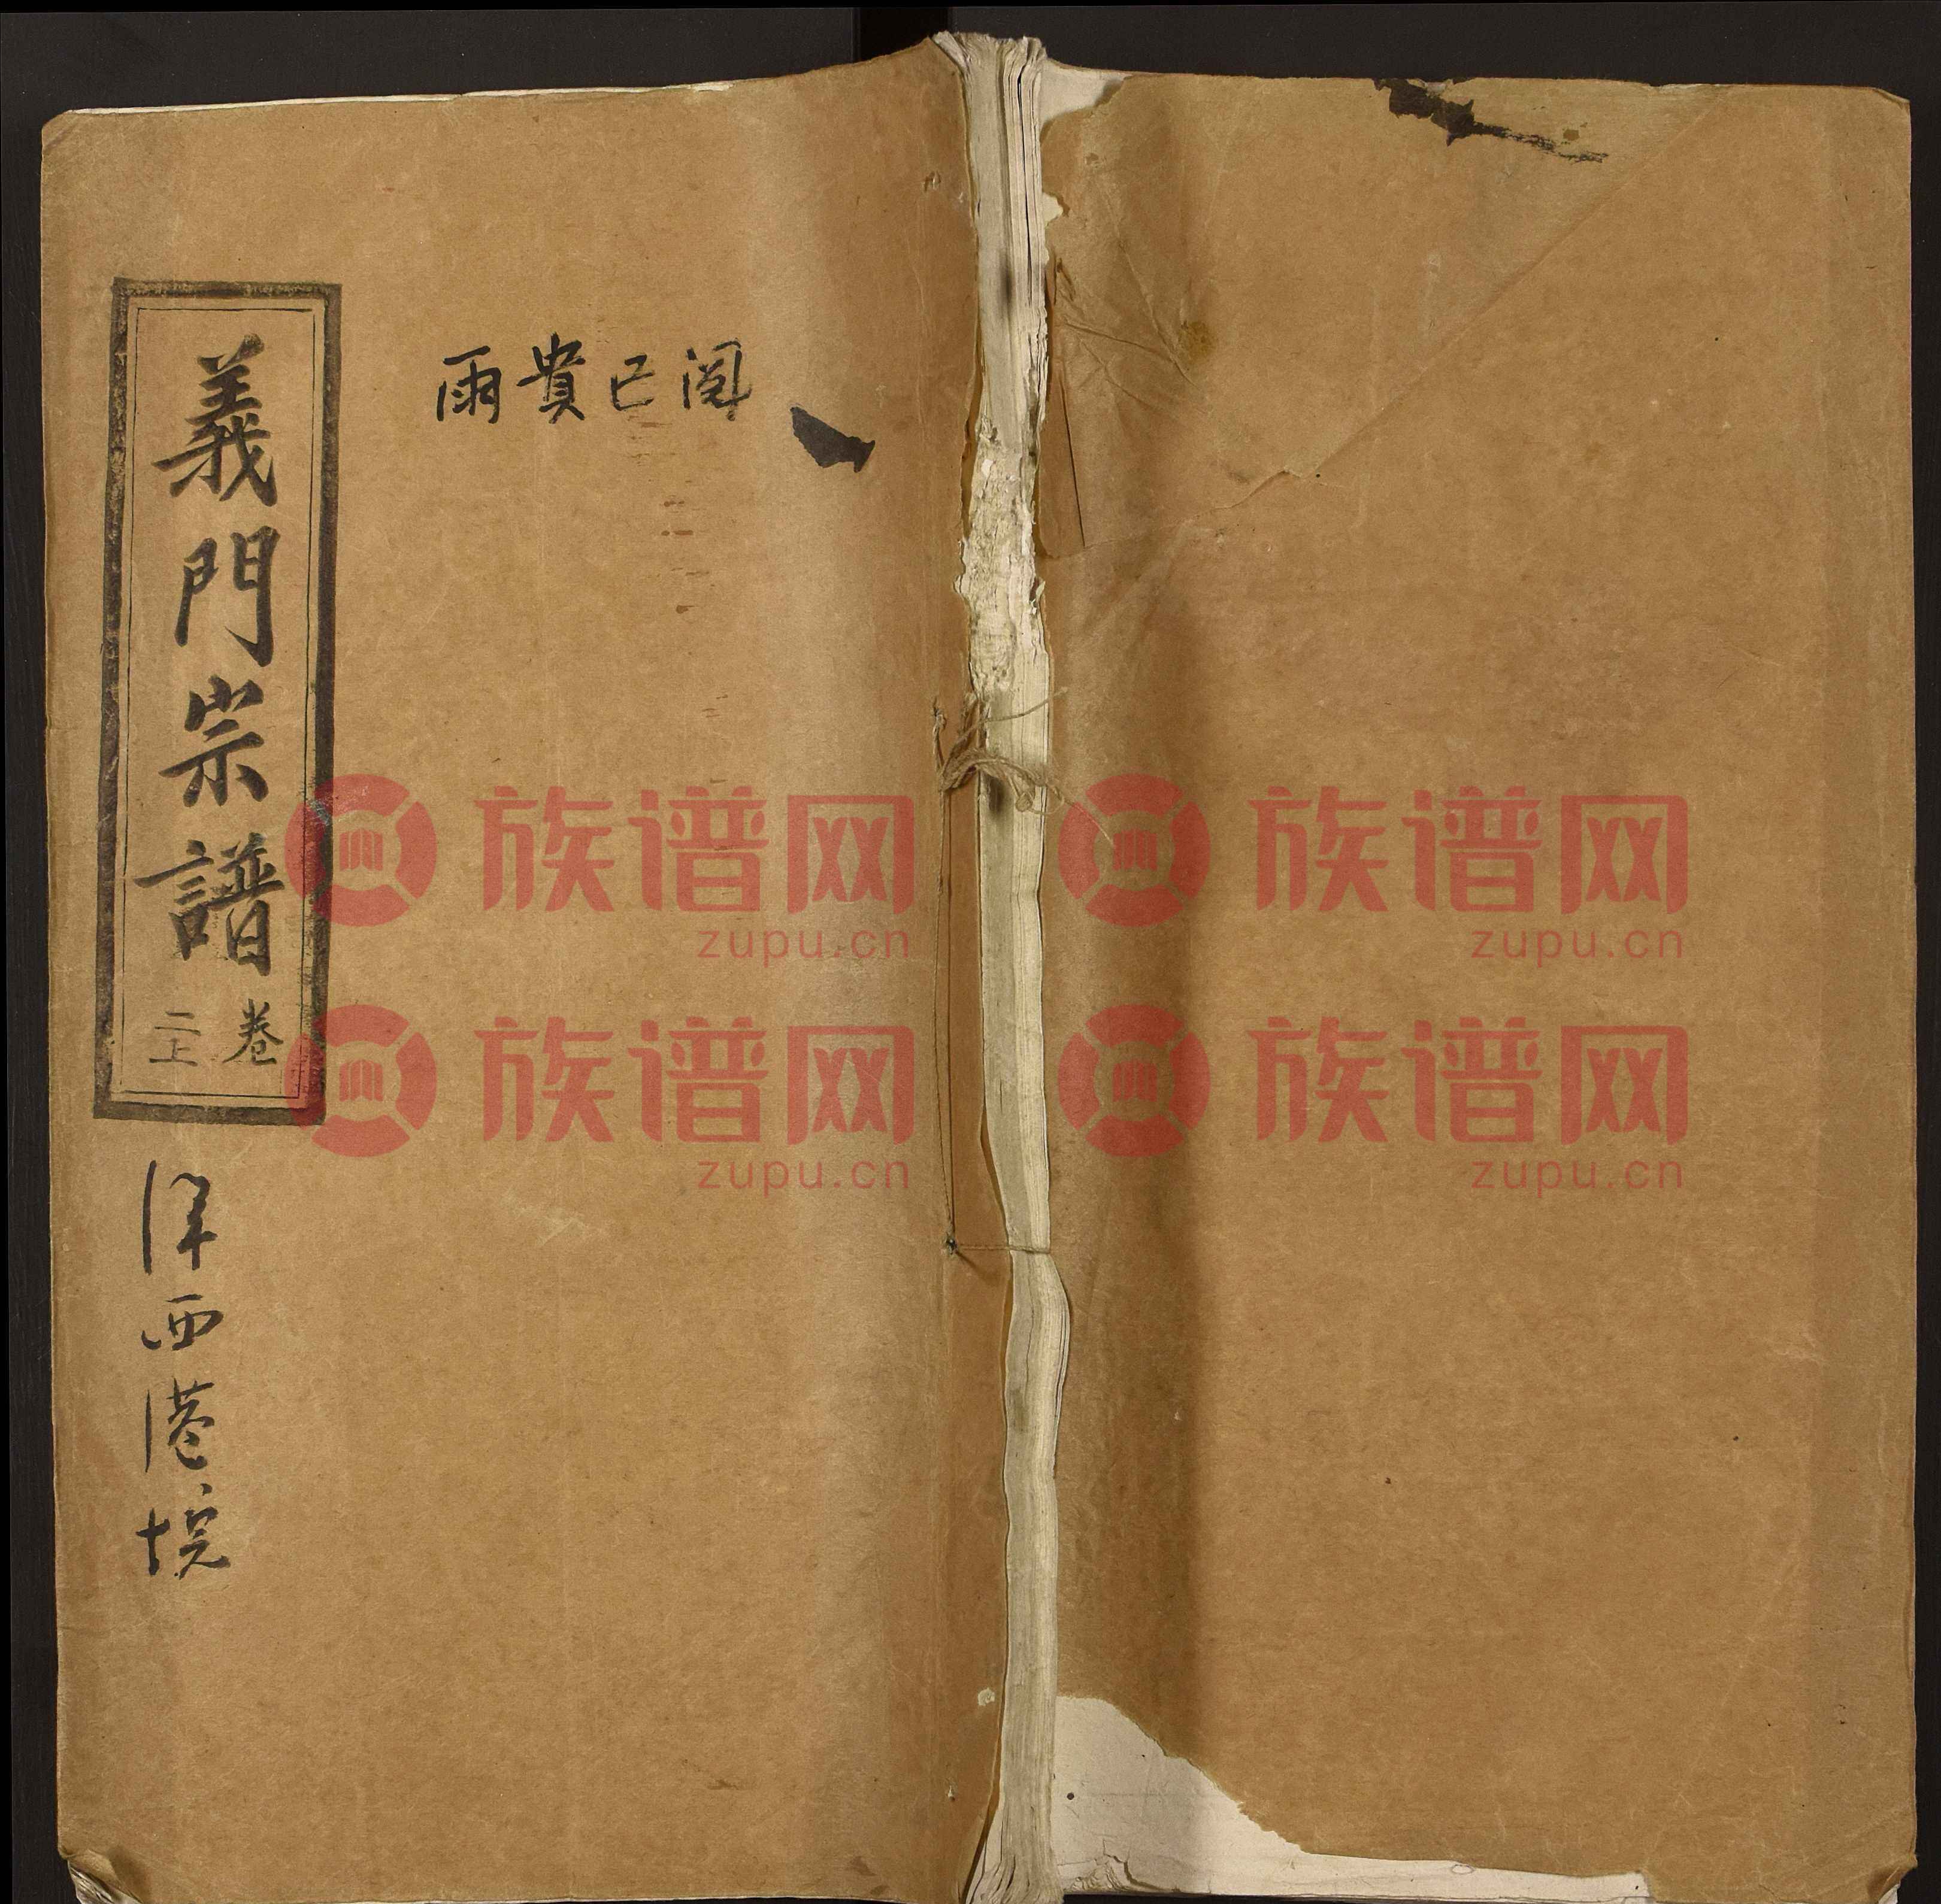 義門宗譜
卷
二上
雨貴已阅
西港垸
族谱网
zupu.cn
族谱网
zupu.cn
族谱网
zupu.cn
族谱网
zupu.cn